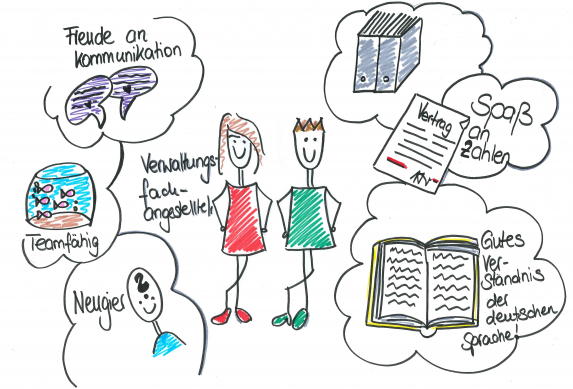 Freude an
Kommunikation
Teamfähig
Neugier
?
Verwaltungs-
fach-
angestellte:r
Vertrag
Spaß
an
Zahlen
Gutes
Ver-
ständnis
der
deutschen
Sprache!